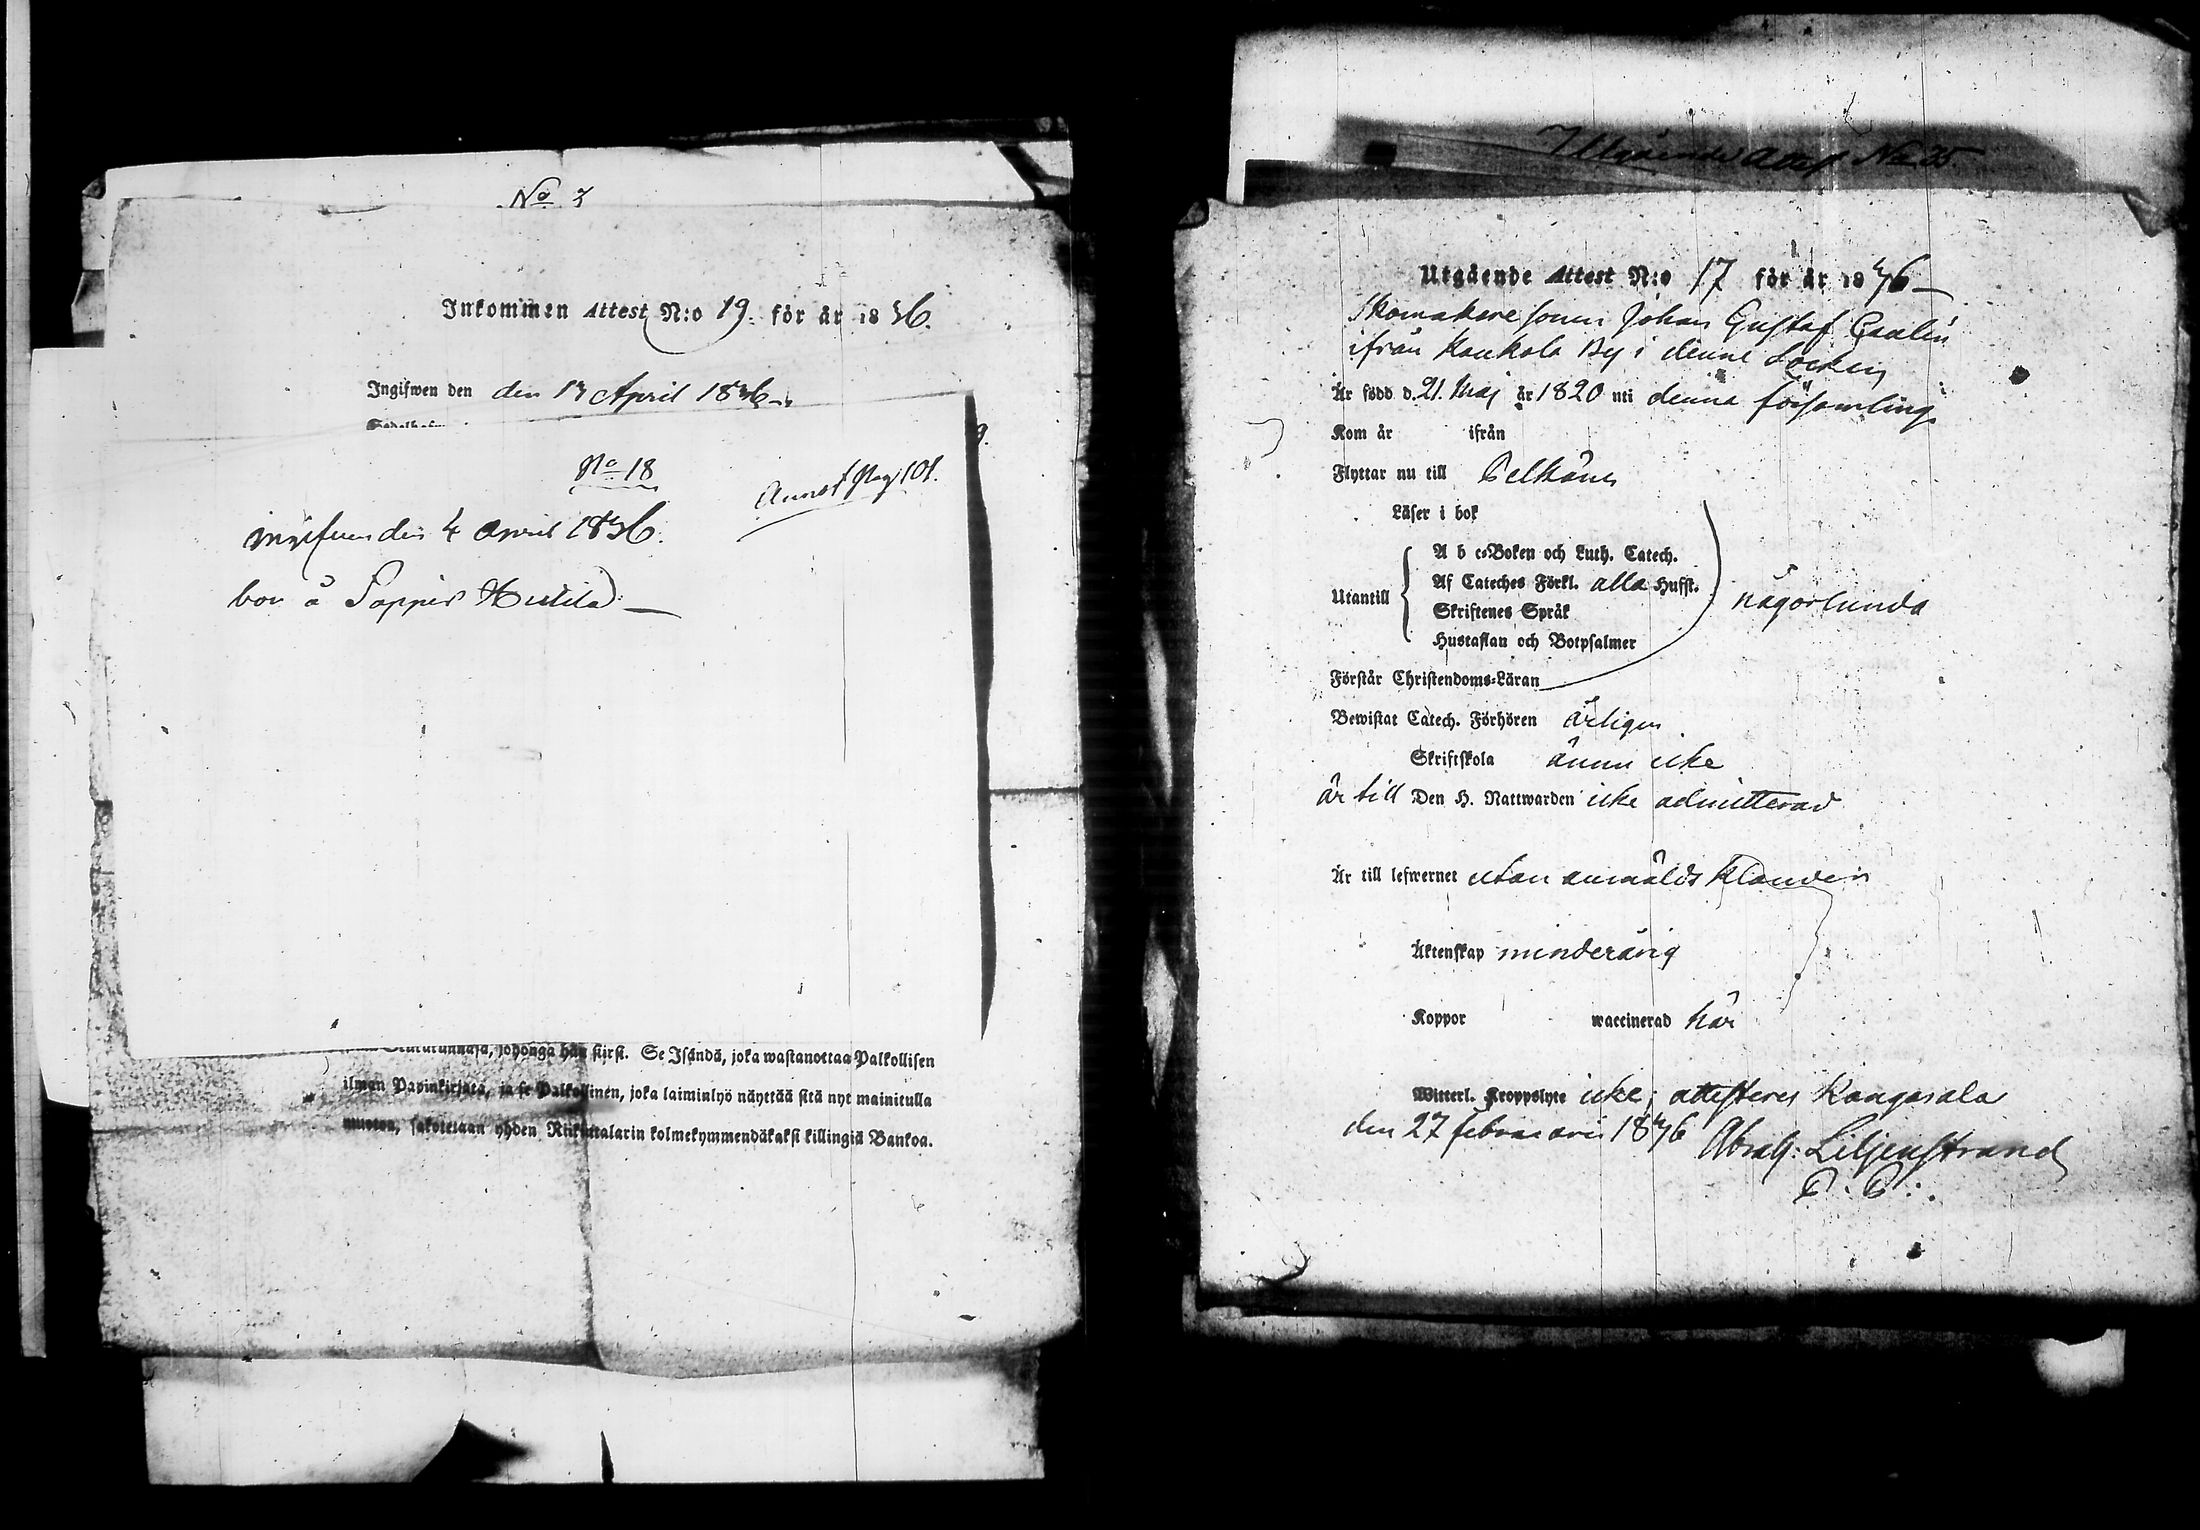 No 3
Inkommen Attest N:o 19. för år 1836.
Ingifwen den den 13 April 1836
No 18
Annot pag 101.
ingifven den 4 April 1836.
bor å
hän siirst. Se Isändä, joka wastanottaa Palkollisen
ilman Papinkirjata, ja se Palkollinen, joka laiminlyö näyttää sitä nyt mainitulla
muotoa, sakotetaan yhden Riikintalarin kolmekymmendäkaksi killingiä Bankoa.
Utgående Attest No 35
Utgående Attest N:o 17 för år 1836
Skomakare sonen Johan Gustaf
ifrån Kaukola By i denne Socken
Är född d. 21. Maj år 1820 uti denna församling
Kom år ifrån
Flyttar nu till Pelkäne
Läser i bok
A b c-Boken och Luth. Catech.
Af Cateches Förkl. alla Hufst.
Utantill
Skriftenes Språk
någorlunda
Hustaflan och Botpsalmer
Förstår Christendoms-Läran
Bewistat Catech. Förhören årligen
Skriftskola ännu icke
är till Den H. Nattwarden icke admitterad
Är till lefwernet utan anmäldt klander
Äktenskap minderårig
Koppor waccinerad har
Witterl. Kroppslyte icke; attesteres Kangasala
den 27 februarii 1836 Abrah: Liljenstrand